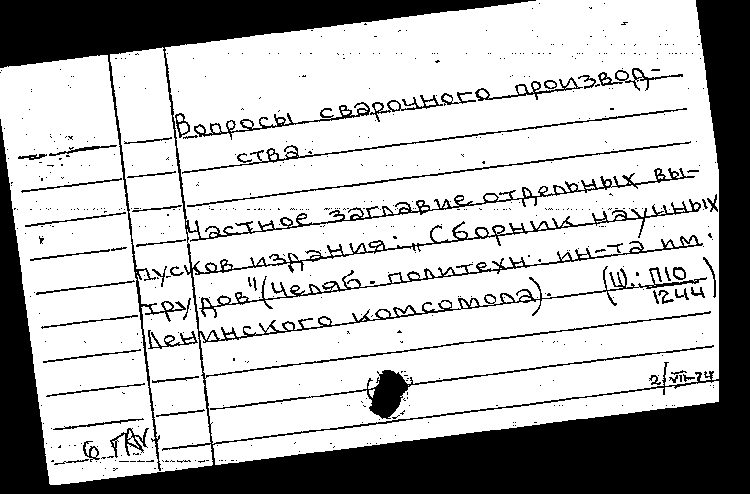 Вопросы сварочного производ-
ства.
Частное заглавие отдельных вы-
пусков издания: „Сборник научных
трудов" (Челяб. политехн. ин-та им.
Ленинского комсомола). (Ш: П10/1244)
2/VII-74